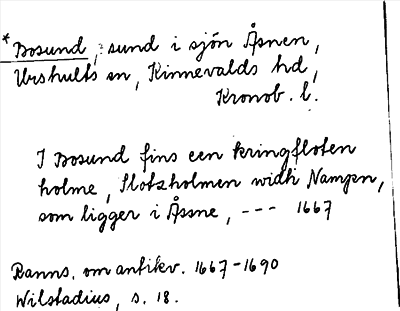 * Bosund, sund i sjön Åsnen,
Urshults sn, Kinnevalds hd,
Kronob. l.
I Bosund fins een kringfloten
holme, Slotzholmen widh Nampn,
som ligger i Åssne, --- 1667
Ranns. om antikv. 1667-1690
Wilstadius, s. 18.